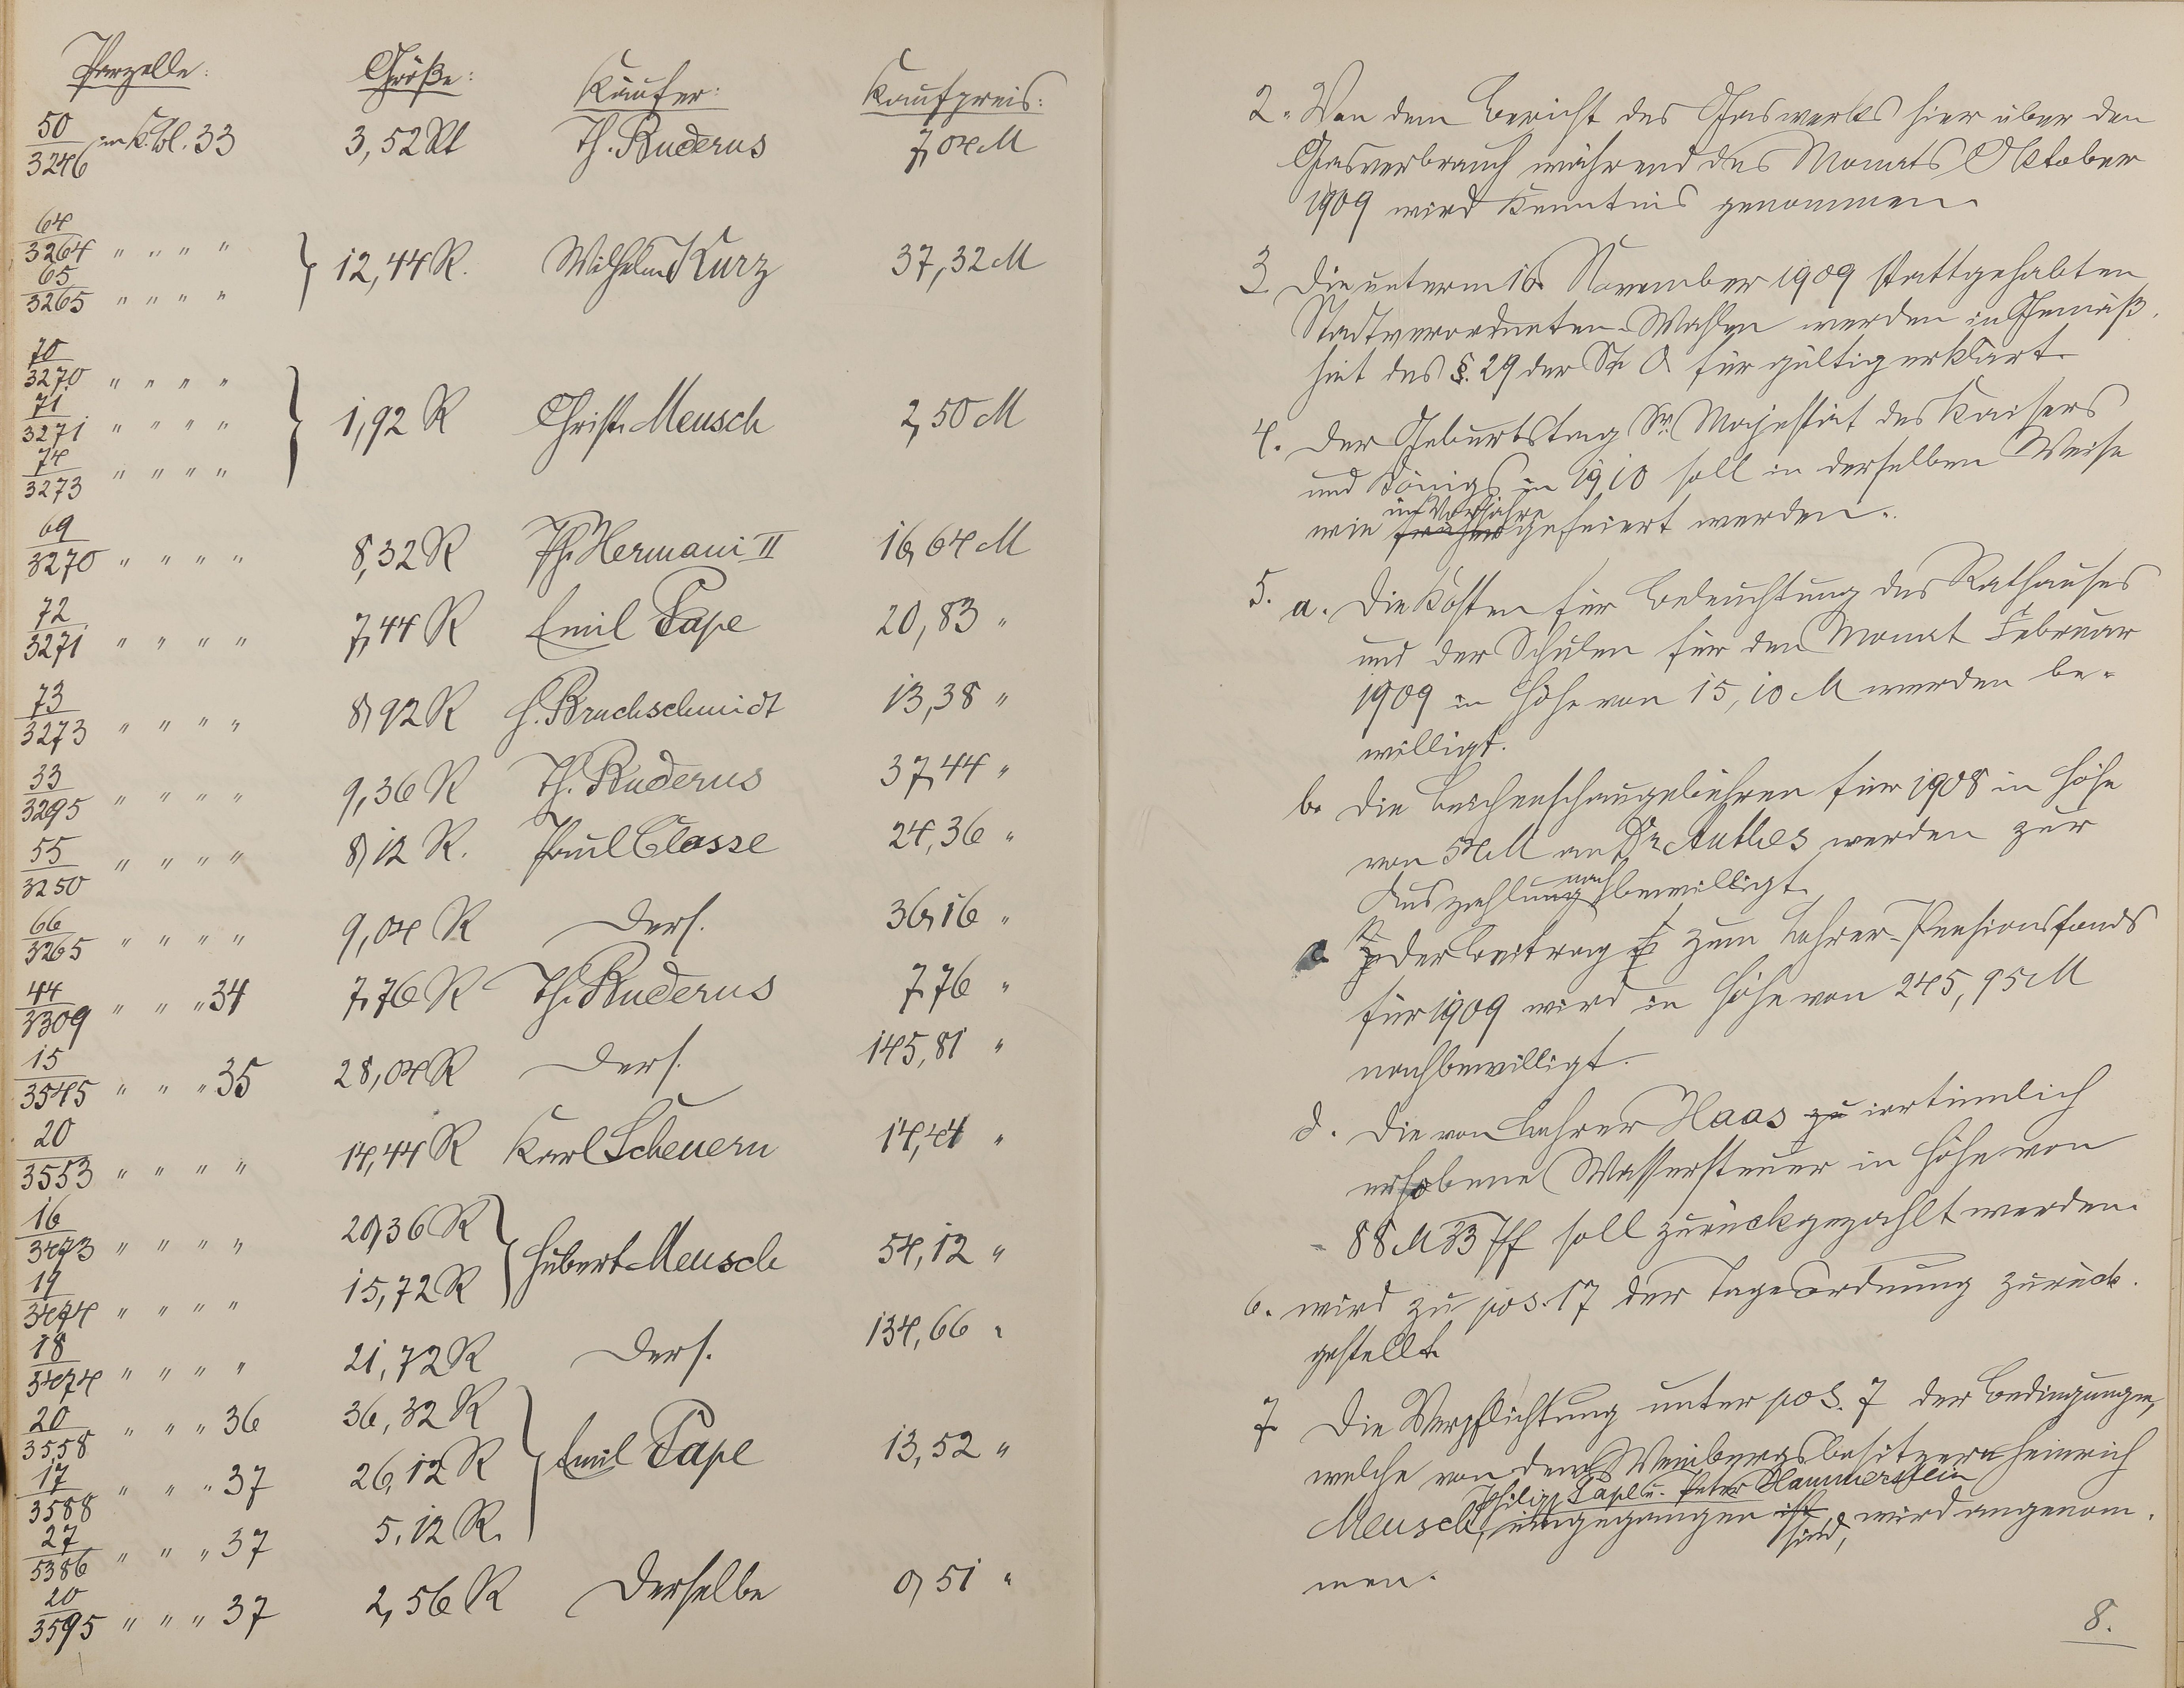 Parzelle: Größe: Käufer: Kaufpreis:
50/3246 im K.bl. 33 3,52 Rt Th. Buderus 7,04 M
64/3264 " " " "
65/3265 " " " " } 12,44 R. Wilhelm Kurz 37,32 M
70/3270 " " " "
71/3271 " " " " } 1,92 R Christ. Meusch 2,50 M
74/3273 " " " "
69/3270 " " " " 8,32 R Ph. Hermani II 16,64 M
72/3271 " " " " 7,44 R Emil Pape 20,83 "
73/3273 " " " " 8,92 R H. Bruchschmidt 13,38 "
33/3295 " " " " 9,36 R Th. Buderus 37,44 "
55/3250 " " " " 8,12 R. Paul Classe 24,36 "
66/3265 " " " " 9,04 R Ders. 36,16 "
44/3309 " " " 34 7,76 R Th. Buderus 7,76 "
15/3545 " " " 35 28,04 R Ders. 145,81 "
20/3553 " " " " 14,44 R Karl Scheuern 14,44 "
16/3473 " " " " 20,36 R
19/3474 " " " " 15,72 R } Hubert Meusch 54,12 "
18/3474 " " " " 21,72 R Ders. 134,66 "
20/3558 " " " 36 36,32 R
17/3588 " " " 37 26,12 R } Emil Pape 13,52 "
27/5386 " " " 37 5,12 R.
20/3595 " " " 37 2,56 R Derselbe 0,51 "
2. Von dem Bericht des Gaswerks hier über den
Gasverbrauch während des Monats Oktober
1909 wird Kenntnis genommen.
3. Die unterm 16. November 1909 stattgehabten
Stadtverordneten-Wahlen werden in Gemäß-
heit des §. 29 der St. O. für gültig erklärt.
4. Der Geburtstag Sr. Majestät des Kaisers
und Königs in 1910 soll in derselben Weise
im Vorjahre
wie früher gefeiert werden.
5. a. Die Kosten für Beleuchtung des Rathauses
und der Schulen für den Monat Februar
1909 in Höhe von 15,10 M werden be-
willigt.
b. Die Leichenschaugebühren für 1908 in Höhe
von 54 M an Dr. Anthes werden zur
nach
Auszahlung bewilligt.
c. Der Beitrag zum Lehrer-Pensionsfonds
für 1909 wird in Höhe von 245,95 M
nachbewilligt.
d. Die von Lehrer Haas zu irrtümlich
erhobene Wassersteuer in Höhe von
88 M 33 Pf soll zurückgezahlt werden.
6. wird zu pos. 17 der Tagesordnung zurück-
gestellt.
7. Die Verpflichtung unter pos. 7 der Bedingungen,
welche von den Weinbergsbesitzern Heinrich
Philipp Pape u. Peter Hammerstein
Meusch, eingegangen ist, wird angenom-
sind,
men.
8.